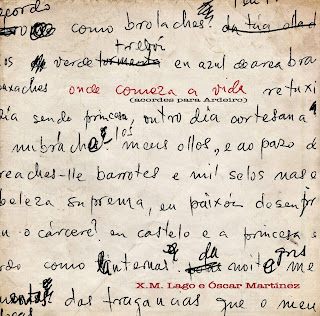 acordo
como brolaches? da túa ollad
trevói
os verde tormenta en azul de area bra
axaches onde comeza a vida retuxi
(acordes para Ardeiro)
día sendo princesa, outro día cortesana
los
nubráchemeus ollos, e ao pazo d
reaches-lle barrotes e mil selos nas
beleza suprema, en paixón desenfr
n o cárcere? en castelo e a princesa s
da gris
rdo como lanternas noite me
X.M. Lago e Óscar Martínez
das fragancias que o meu